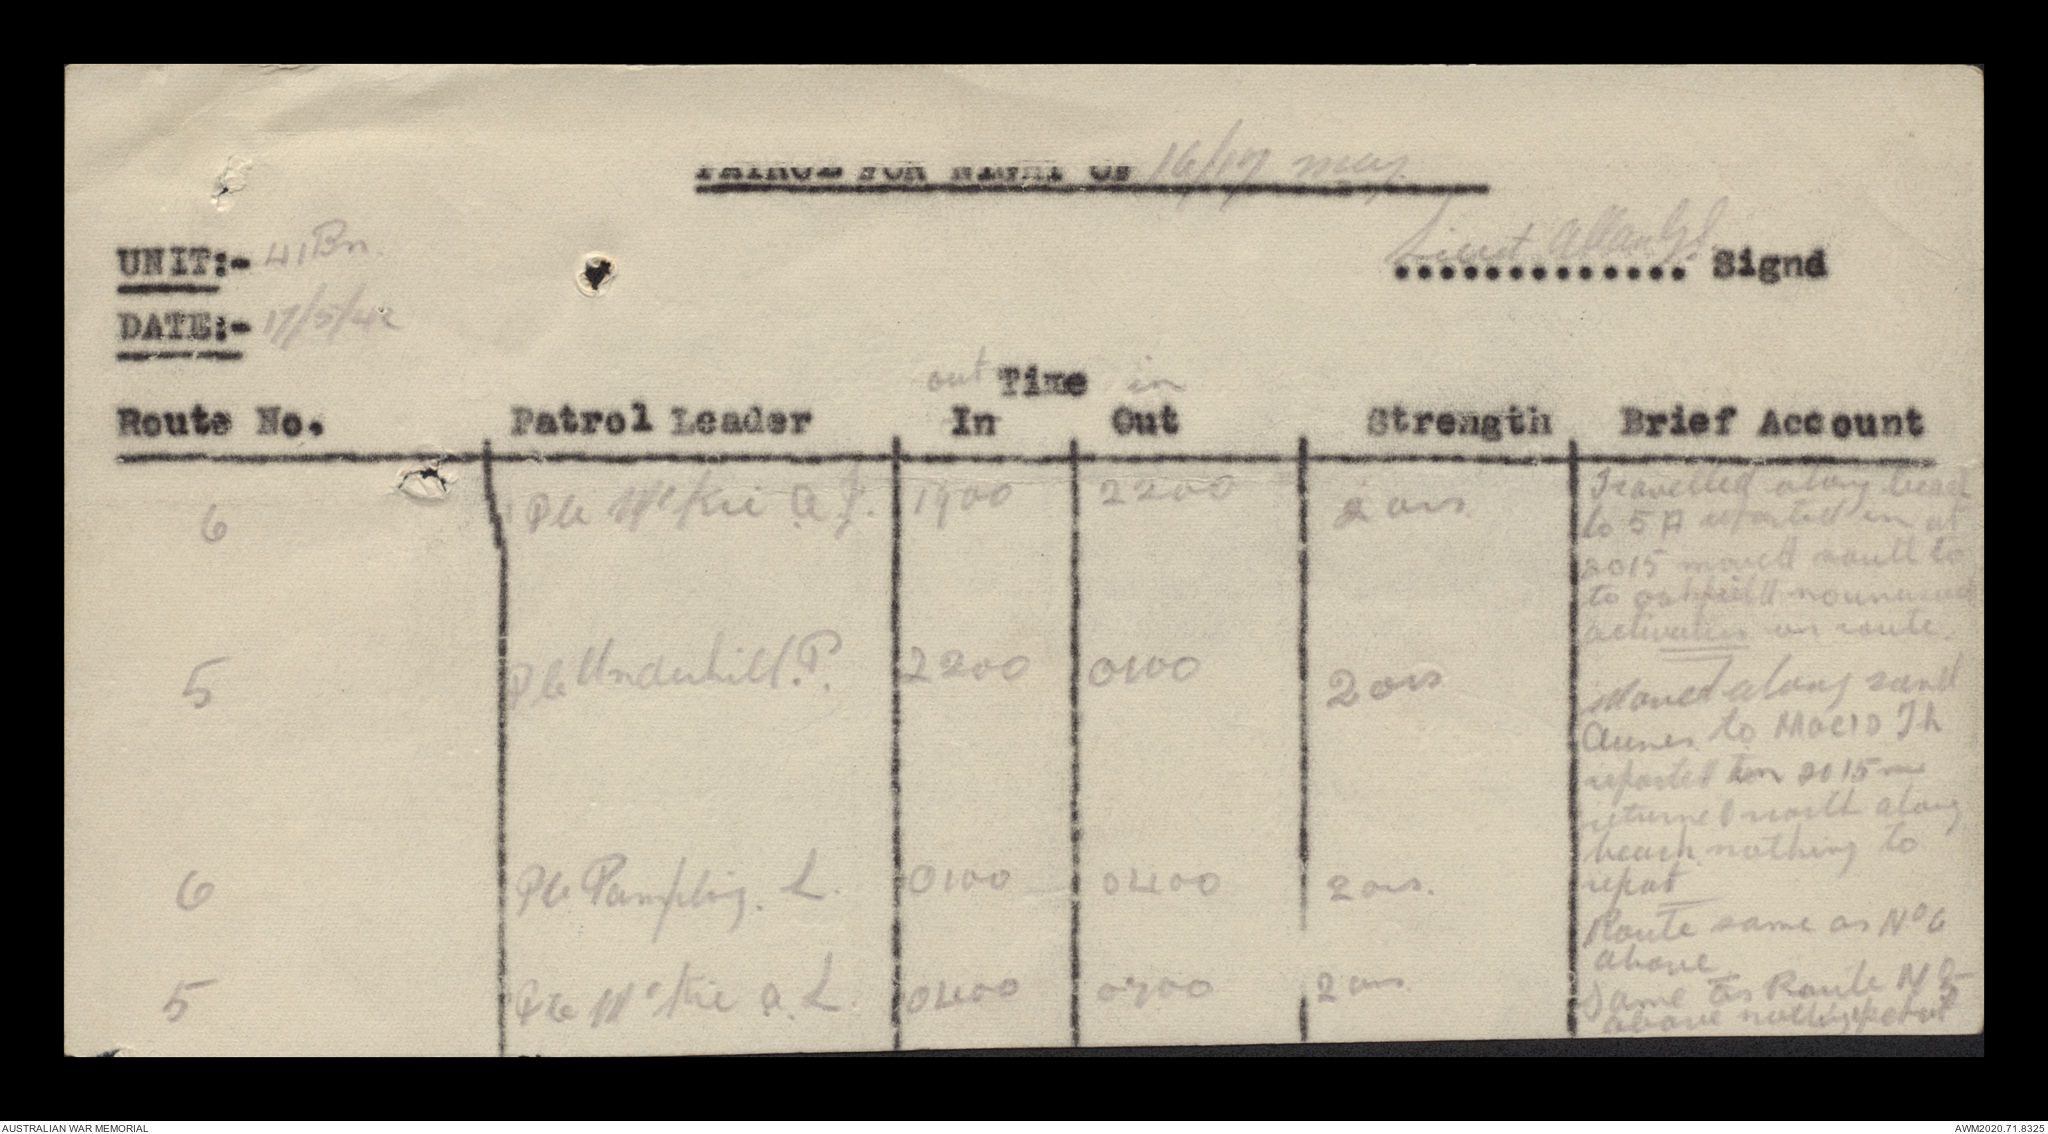 PATROL FOR NIGHT OF 16/17 May
UNIT:- 41 Bn.
Lieut Allan G.J.
.............. Signd
DATE:- 17/5/42
out Time in
Route No. Patrol Leader In Out Strength Brief Account
6 Pte McKie A.J. 1900 2200 2 ors Travelled along beach
to 5 A reported in at
2015 moved south to
to no unusual
activities on route.
5 Pte Underhill. P. 2200 0100 2 ors Moved along sand
to
reported in 2015
returned north along
beach nothing to
report
6 Pte Pampling. L. 0100 0400 2 ors. Route same as No 6
above
5 Pte McKie A. L. 0400 0700 2 ors. Same as Route N 5
above nothing
AUSTRALIAN WAR MEMORIAL AWM2020.71.8325